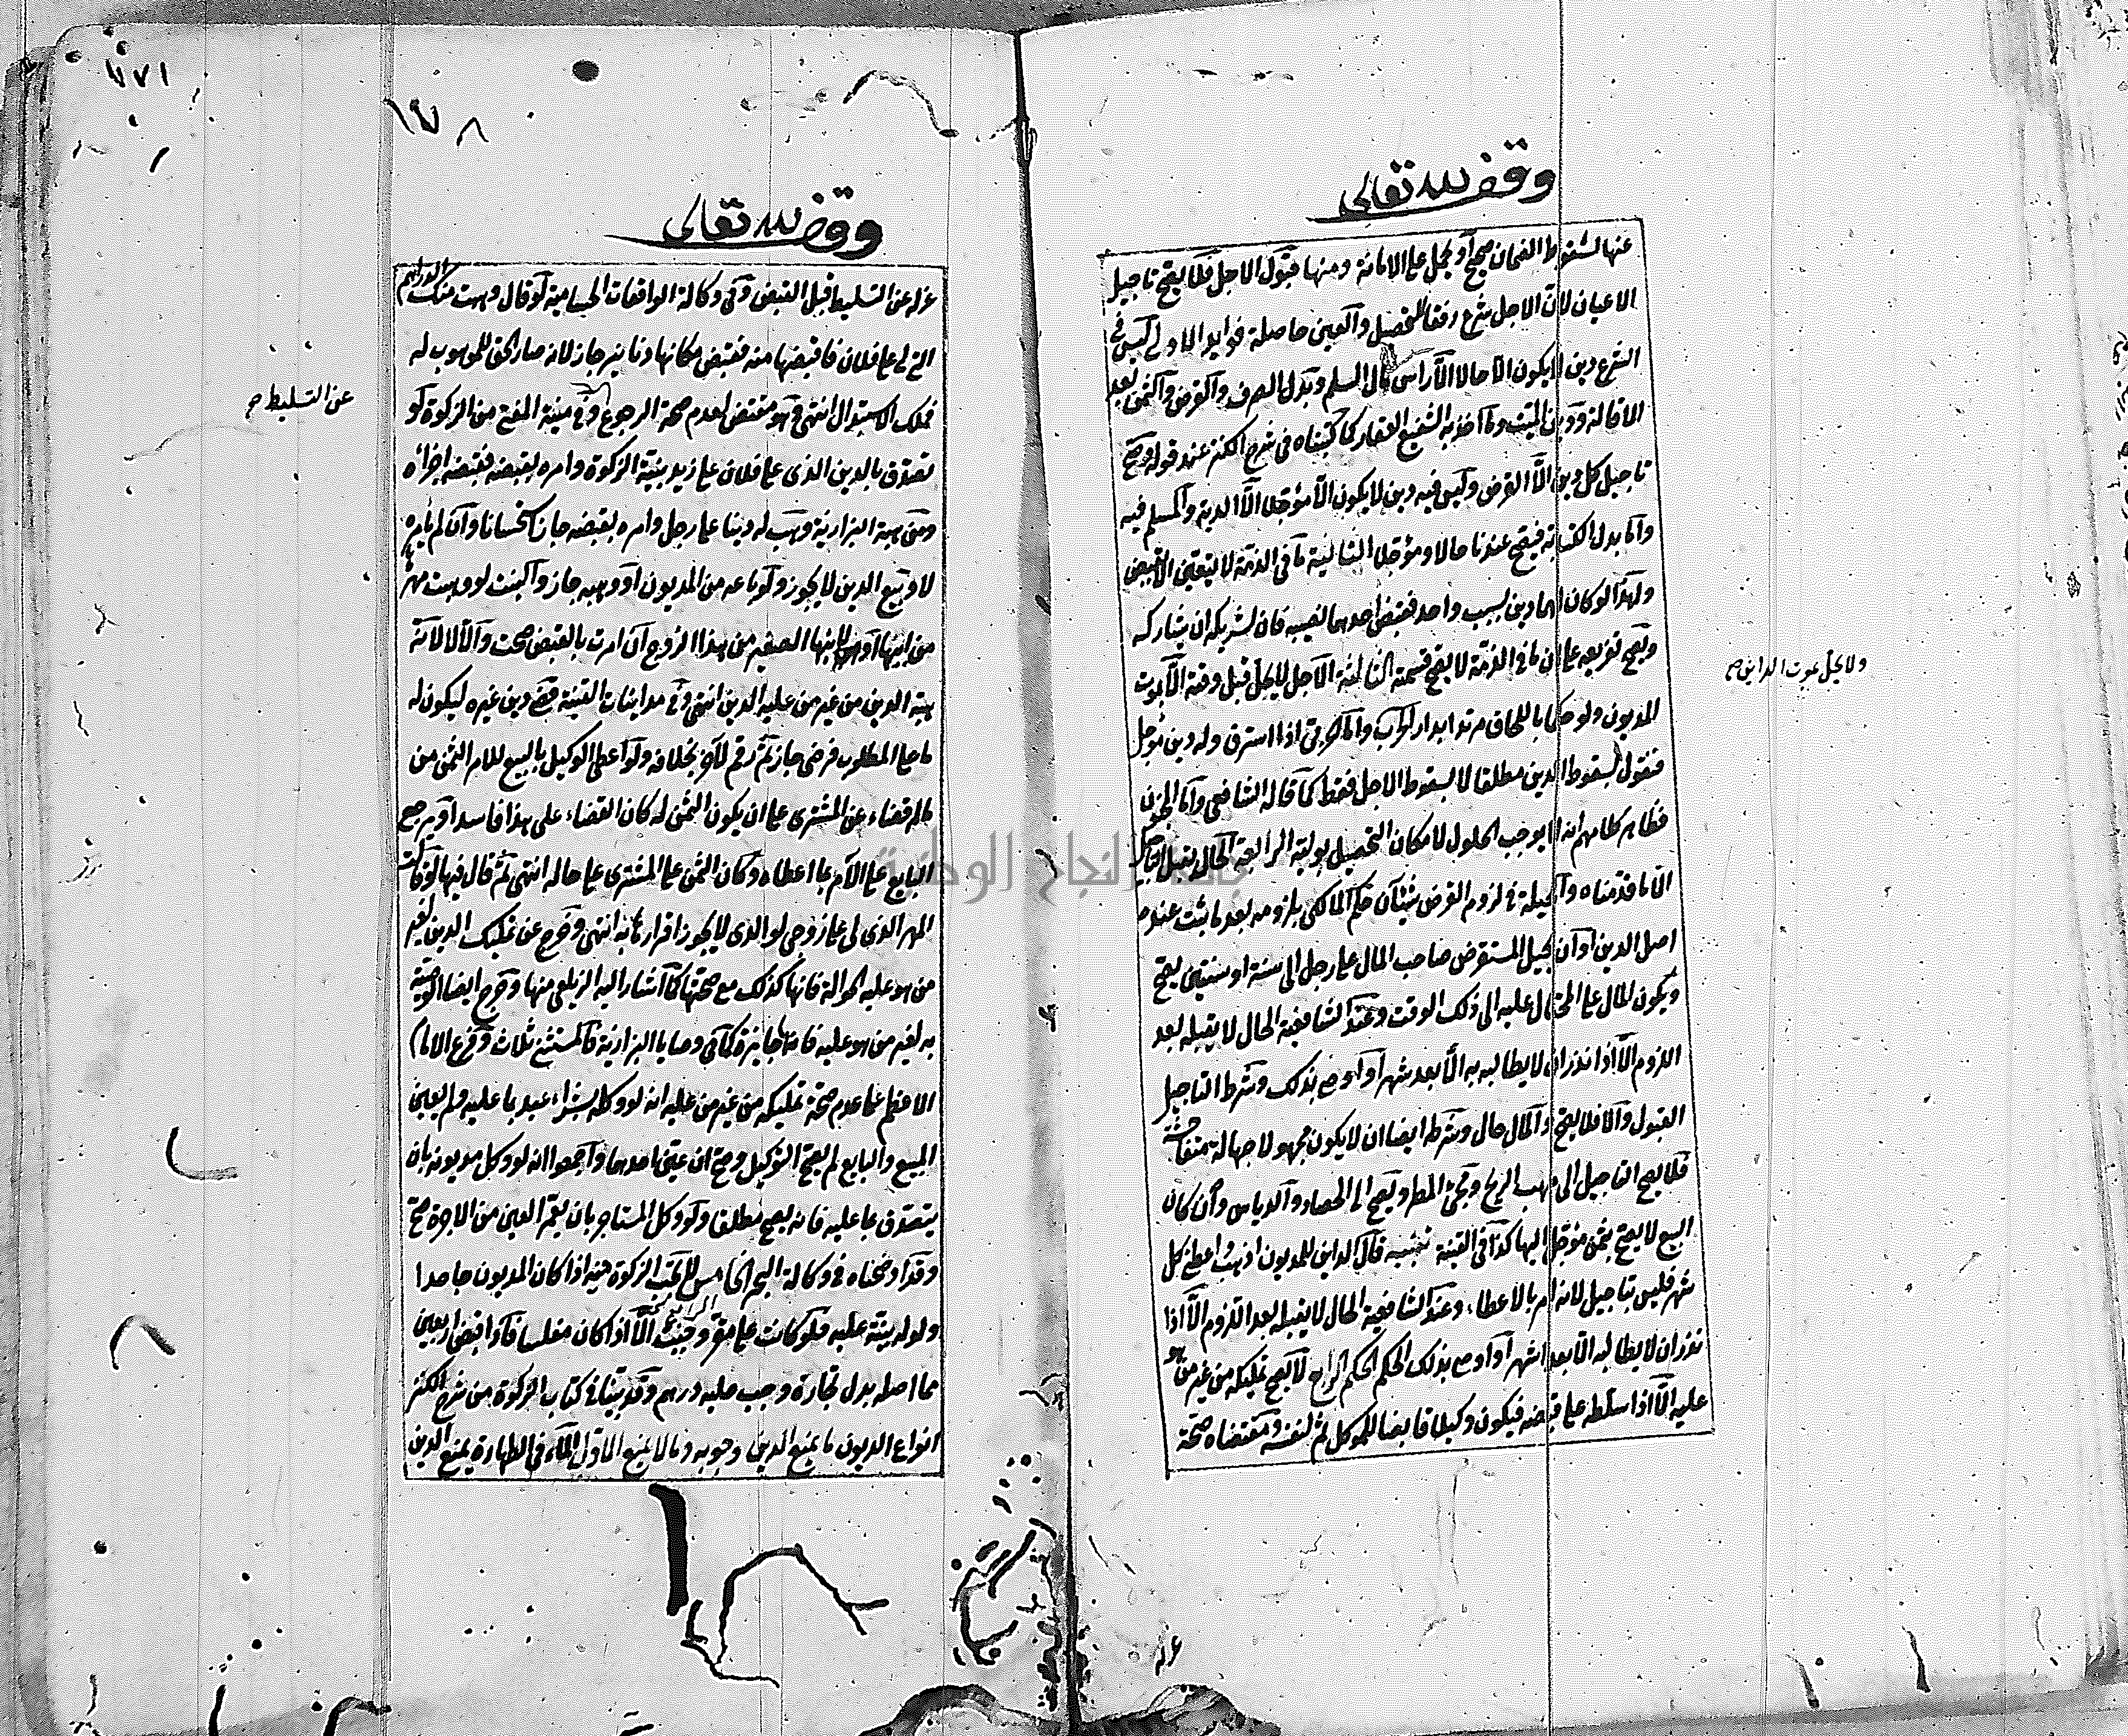 وقف لله تعالى
عنها لسقوط الضمان صحيح أو يحمل على الامانة ومنها قبول الاجل فلا يصح تاجيل
الاعيان لان الاجل شرع رفقا للتحصيل والعين حاصلة فوايد الاولى ليس في
الشرع دين لا يكون الا حالا الا رأس مال السلم وبدل الصرف والقرض والثمن بعد
الاقالة ودين الميت وما اخذ به الشفيع العقار كما كتبناه في شرح الكنز عند قوله وصح
تاجيل كل دين الا القرض وليس فيه دين لا يكون الا مؤجلا الا الدية والمسلم فيه
واما بدل الكتابة فيصح عندنا حالا ومؤجلا الثانية ما في الذمة لا يتعين الا بقبض
ولهذا لو كان لهما دين بسبب واحد فقبض احدهما نصيبه فان لشريكه ان يشاركه
ويصح تفريعه على ان ما في الذمة لا يصح قسمته الثالثة الاجل لا يحل قبل وقته الا بموت
المديون ولو حكما باللحاق مرتدا بدار الحرب واما الحربي اذا استرق وله دين مؤجل
فنقول بسقوط الدين مطلقا لا بسقوط الاجل فقط كما قاله الشافعي واما الجنون
فظاهر كلامهم انه لا يوجب الحلول لامكان التحصيل بوليه الرابعة الحال يقبل التاجيل
الا ما قدمناه والحيلة في لزوم القرض شيئان حكم المالكي بلزومه بعد ما ثبت عنده
اصل الدين او ان يحيل المستقرض صاحب المال على رجل الى سنة او سنتين يصح
ويكون المال على المحتال عليه الى ذلك الوقت وعند الشافعية الحال لا يقبله بعد
اللزوم الا اذا نذر ان لا يطالبه به الا بعد شهر او اوصى بذلك وشرط التاجيل
القبول والا فلا يصح والمال حال وشرطه ايضا ان لا يكون مجهولا جهالة متفاحشة
فلا يصح التاجيل الى مهب الريح ومجئ المطر ويصح الى الحصاد والدياس وان كان
البيع لا يصح بثمن مؤجل اليها كذا في القنية تنبيه قال الداين للمديون اذهب واعطني كل
شهر فليس بتاجيل لانه امر بالاعطاء وعند الشافعية الحال لا يقبله بعد اللزوم الا اذا
نذر ان لا يطالبه الا بعد شهر او اوصى بذلك الحكم الرابع لا يصح تمليكه من غير من هو
عليه الا اذا سلطه على قبضه فيكون وكيلا قابضا للموكل ثم لنفسه ومقتضاه صحة
ولا يحل بموت الداين صح
عزله
١٧٨
وقف لله تعالى
عزله عن التسليط قبل القبض وفي وكالة الواقعات الحسامية لو قال وهبت منك الدراهم
التي لي على فلان فاقبضها منه فقبض مكانها دنانير جاز لانه صار الحق للموهوب له
فملك الاستبدال انتهى وهو مقتضى لعدم صحة الرجوع وفي منية المفتي من الزكوة لو
تصدق بالدين الذي على فلان على زيد بنية الزكوة وامره بقبضه فقبضه اجزأه
وفي هبة البزازية وهب له دينا على رجل وامره بقبضه جاز استحسانا وان لم يأمره
لا وبيع الدين لا يجوز ولو باعه من المديون او وهبه جاز والبنت لو وهبت مهرها
من ابيها او لابنها الصغير من هذا الزوج ان امرت بالقبض صحت والا لا لانه
هبة الدين من غير من عليه الدين انتهى وفي مداينات القنية قضى دين غيره ليكون له
ما على المطلوب فرضي جاز ثم رقم لآخر بخلافه ولو اعطى الوكيل بالبيع للامر الثمن من
ماله قضاء عن المشتري على ان يكون الثمن له كان القضاء على هذا فاسدا ويرجع
البايع على الآمر بما اعطاه وكان الثمن على المشتري على حاله انتهى ثم قال فيها لو قالت
المهر الذي لي على زوجي لوالدي لا يجوز اقرارها به انتهى وخرج عن تمليك الدين لغير
من هو عليه الحوالة فانها كذلك مع صحتها كما اشار اليه الزيلعي منها وخرج ايضا الوصية
به لغير من هو عليه فانها جايزة كما في وصايا البزازية فالمستثنى ثلاث وفرع الامام
الاعظم على عدم صحة تمليكه من غير من عليه انه لو وكله بشراء عبد بما عليه ولم يعين
المبيع والبايع لم يصح التوكيل وصح ان عين احدهما واجمعوا انه لو وكل مديونه بان
يتصدق بما عليه فانه يصح مطلقا ولو وكل المستاجر بان يعمر العين من الاجرة صح
وقد اوضحناه في وكالة البحر الخامس لا تجب الزكوة فيه اذا كان المديون جاحدا
ولو له بينة عليه فلو كانت على مقر وجبت الا اذا كان مفلسا فاذا قبض اربعين
مما اصله بدل تجارة وجب عليه درهم وقد بينا في كتاب الزكوة من شرح الكنز
انواع الديون ما يمنع الدين وجوبه وما لا يمنع الاول الماء في الطهارة يمنع الدين
عن التسليط صح